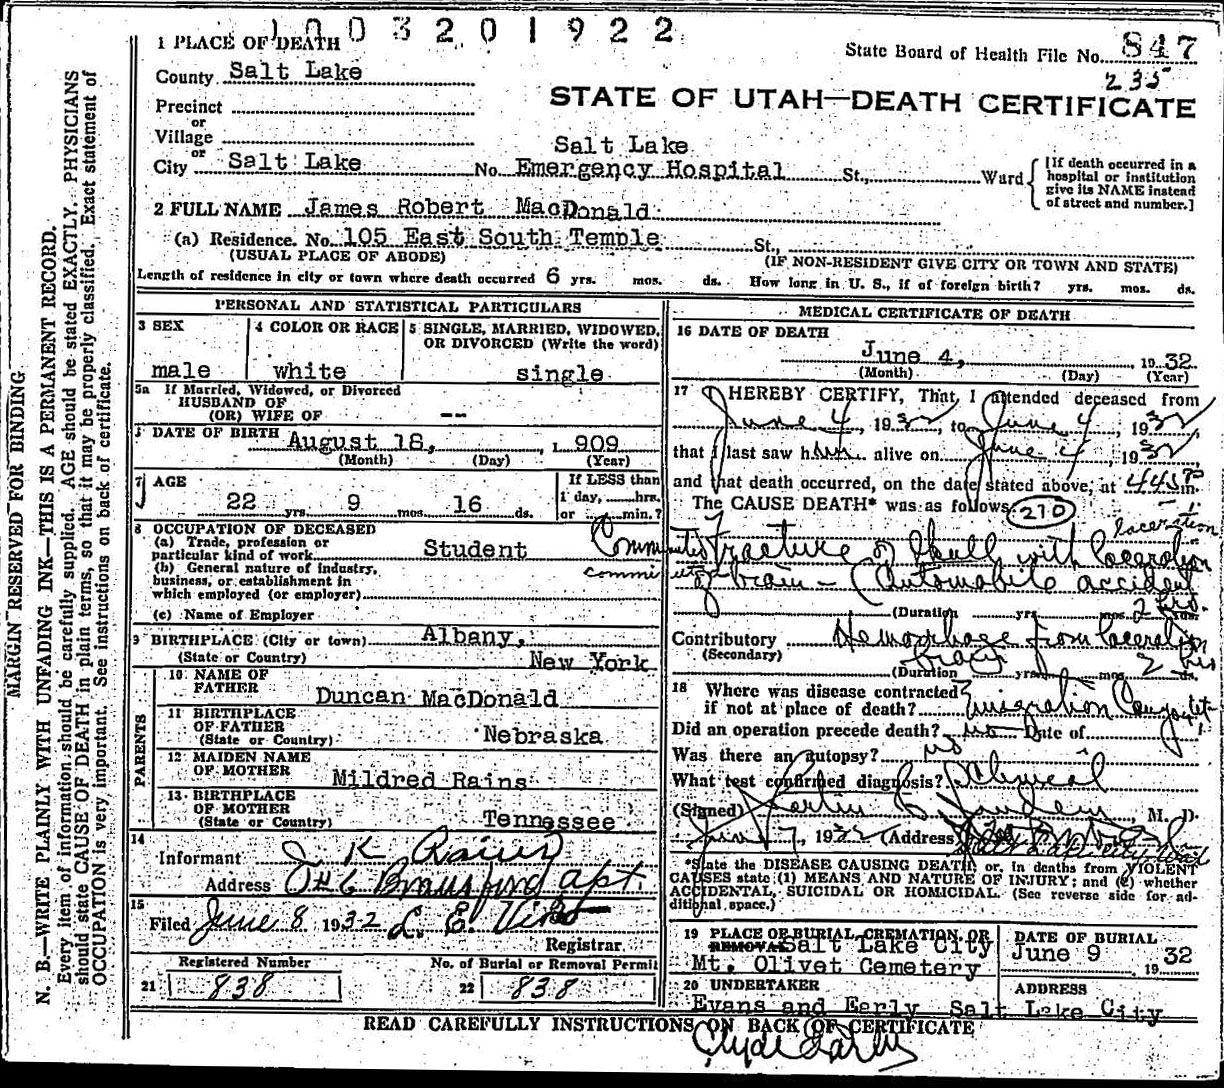 1003201922
State Board of Health File No. 847
235
STATE OF UTAH—DEATH CERTIFICATE
1 PLACE OF DEATH
County Salt Lake
Precinct
or
Village
or
City Salt Lake No. Salt Lake Emergency Hospital St., Ward
[If death occurred in a
hospital or institution
give its NAME instead
of street and number.]
2 FULL NAME James Robert MacDonald
(a) Residence. No. 105 East South Temple St.,
(USUAL PLACE OF ABODE) (IF NON-RESIDENT GIVE CITY OR TOWN AND STATE)
Length of residence in city or town where death occurred 6 yrs. mos. ds. How long in U. S., if of foreign birth? yrs. mos. ds.
PERSONAL AND STATISTICAL PARTICULARS
3 SEX
male
4 COLOR OR RACE
white
5 SINGLE, MARRIED, WIDOWED,
OR DIVORCED (Write the word)
single
5a If Married, Widowed, or Divorced
HUSBAND OF
(OR) WIFE OF --
DATE OF BIRTH August 18, 1909
(Month) (Day) (Year)
7 AGE
22 yrs. 9 mos. 16 ds.
If LESS than
1 day, hrs.
or min.?
8 OCCUPATION OF DECEASED
(a) Trade, profession or
particular kind of work Student
(b) General nature of industry,
business, or establishment in
which employed (or employer)
(c) Name of Employer
9 BIRTHPLACE (City or town) Albany,
(State or Country) New York
PARENTS
10 NAME OF
FATHER Duncan MacDonald
11 BIRTHPLACE
OF FATHER
(State or Country) Nebraska
12 MAIDEN NAME
OF MOTHER Mildred Rains
13 BIRTHPLACE
OF MOTHER
(State or Country) Tennessee
14
Informant J K Rains
Address apt.
15
Filed June 8 1932 L. E.
Registrar.
Registered Number
21 838
No. of Burial or Removal Permit
22 838
MEDICAL CERTIFICATE OF DEATH
16 DATE OF DEATH
June 4, 1932
(Month) (Day) (Year)
17 I HEREBY CERTIFY, That I attended deceased from
June 4, 1932, to June 4, 1932,
that I last saw him alive on June 4, 1932,
and that death occurred, on the date stated above, at 445 p m.
The CAUSE DEATH* was as follows: 210
laceration
Comminuted Fracture of Skull with laceration
of brain - (Automobile accident
(Duration yrs. mos. 2 hrs. ds.
Contributory Hemorrhage from laceration
(Secondary)
(Duration yrs. mos. 2 hrs ds.
18 Where was disease contracted
if not at place of death? Emigration Canyon Ut.
Did an operation precede death? no Date of
Was there an autopsy? no
What test confirmed diagnosis? Clinical
(Signed) M. D.
June 7, 1932 (Address)
*State the DISEASE CAUSING DEATH, or, in deaths from VIOLENT
CAUSES state (1) MEANS AND NATURE OF INJURY; and (2) whether
ACCIDENTAL, SUICIDAL OR HOMICIDAL. (See reverse side for ad-
ditional space.)
19 PLACE OF BURIAL, CREMATION, OR
REMOVAL Salt Lake City
Mt. Olivet Cemetery
DATE OF BURIAL
June 9 1932
20 UNDERTAKER
Evans and Early
ADDRESS
Salt Lake City
READ CAREFULLY INSTRUCTIONS ON BACK OF CERTIFICATE
Clyde Early
MARGIN RESERVED FOR BINDING
N. B.—WRITE PLAINLY WITH UNFADING INK—THIS IS A PERMANENT RECORD.
Every item of information should be carefully supplied. AGE should be stated EXACTLY. PHYSICIANS
should state CAUSE OF DEATH in plain terms, so that it may be properly classified. Exact statement of
OCCUPATION is very important. See instructions on back of certificate.